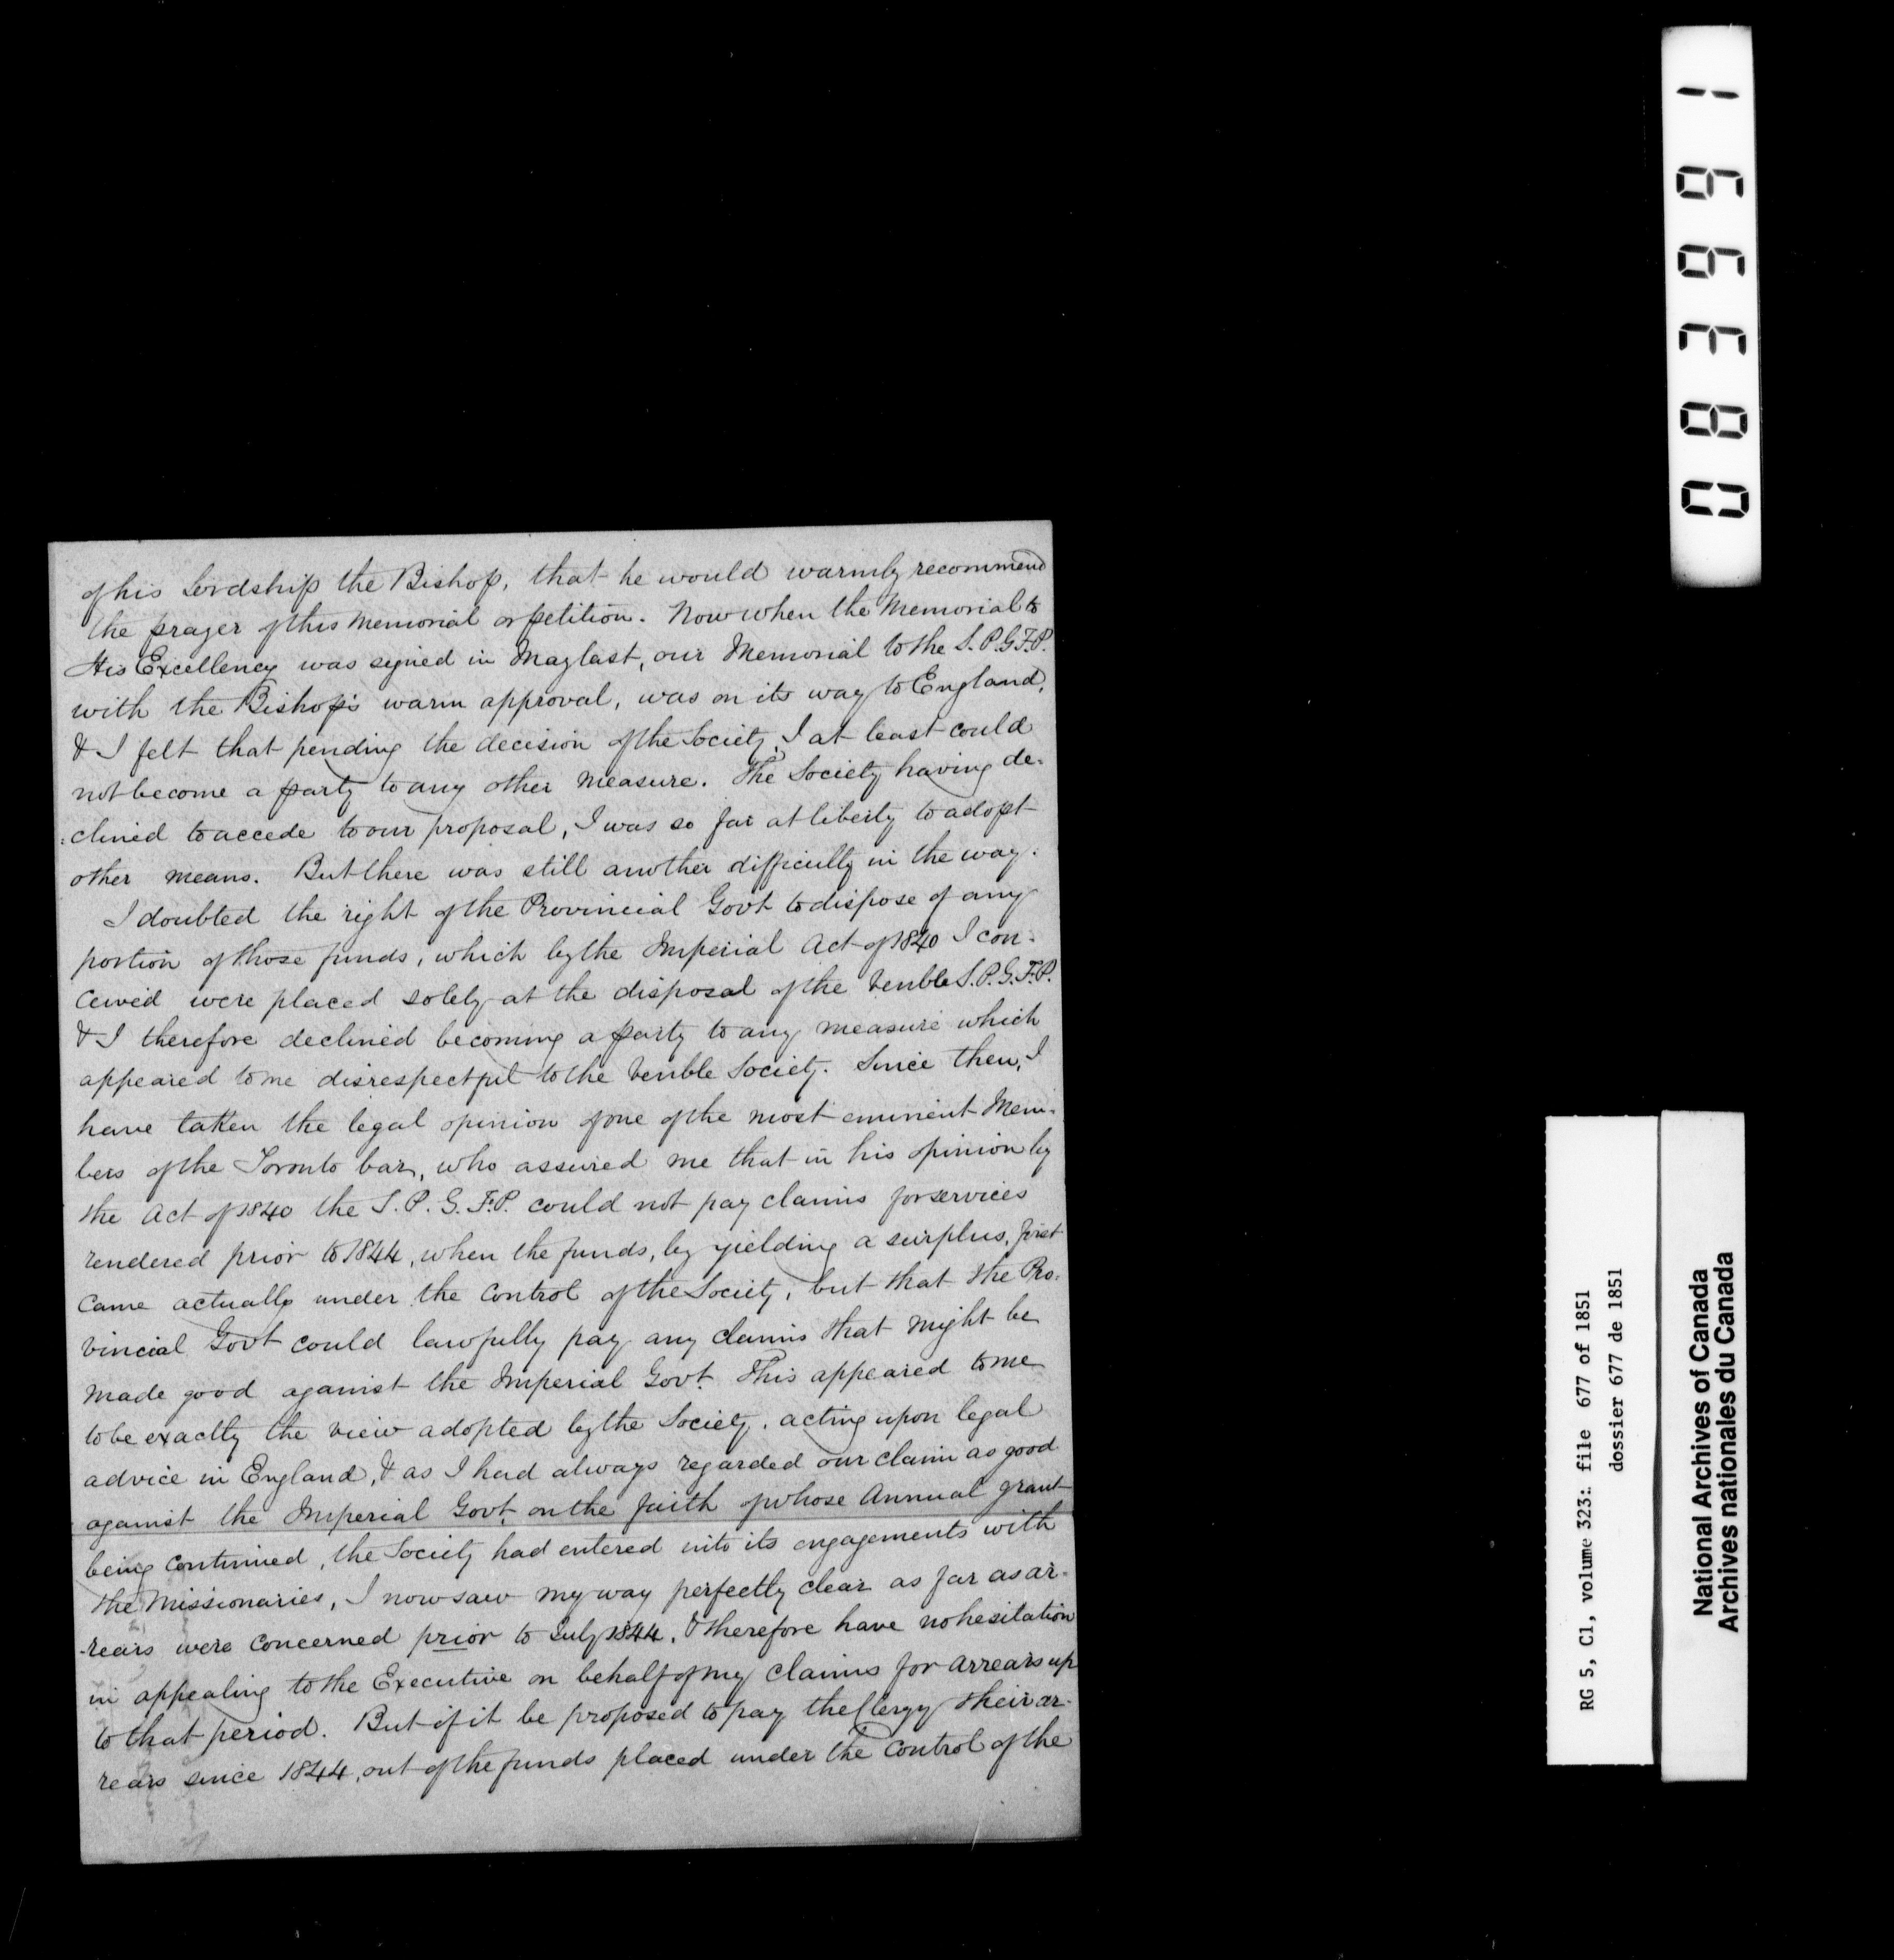 of his Lordship the Bishop, that he would warmly recommend
the prayer of this Memorial or petition. Now when the Memorial to
His Excellency was signed in May last, our Memorial to the S.P.G.F.P.
with the Bishop's warm approval, was on its way to England,
& I felt that pending the decision of the Society, I at least could
not become a party to any other measure. The Society having de-
:clined to accede to our proposal, I was so far at liberty to adopt
other means. But there was still another difficulty in the way.
I doubted the right of the Provincial Govt to dispose of any
portion of those funds, which by the Imperial Act of 1840 I con-
ceived were placed solely at the disposal of the Venble S.P.G.F.P.
& I therefore declined becoming a party to any measure which
appeared to me disrespectful to the Venble Society. Since then, I
have taken the legal opinion of one of the most eminent Mem-
bers of the Toronto bar, who assured me that in his opinion by
the Act of 1840 the S.P.G.F.P. could not pay claims for services
rendered prior to 1844, when the funds, by yielding a surplus, first
came actually under the control of the Society, but that the Pro-
vincial Govt could lawfully pay any claims that might be
made good against the Imperial Govt. This appeared to me
to be exactly the view adopted by the Society, acting upon legal
advice in England, & as I had always regarded our claim as good
against the Imperial Govt. on the faith of whose Annual grant
being continued, the Society had entered into its engagements with
the Missionaries, I now saw my way perfectly clear as far as ar-
-rears were concerned prior to July 1844, & therefore have no hesitation
in appealing to the Executive on behalf of my claims for arrears up
to that period. But if it be proposed to pay the Clergy their ar-
rears since 1844, out of the funds placed under the control of the
083661
RG 5, C1, volume 323: file 677 of 1851
dossier 677 de 1851
National Archives of Canada
Archives nationales du Canada